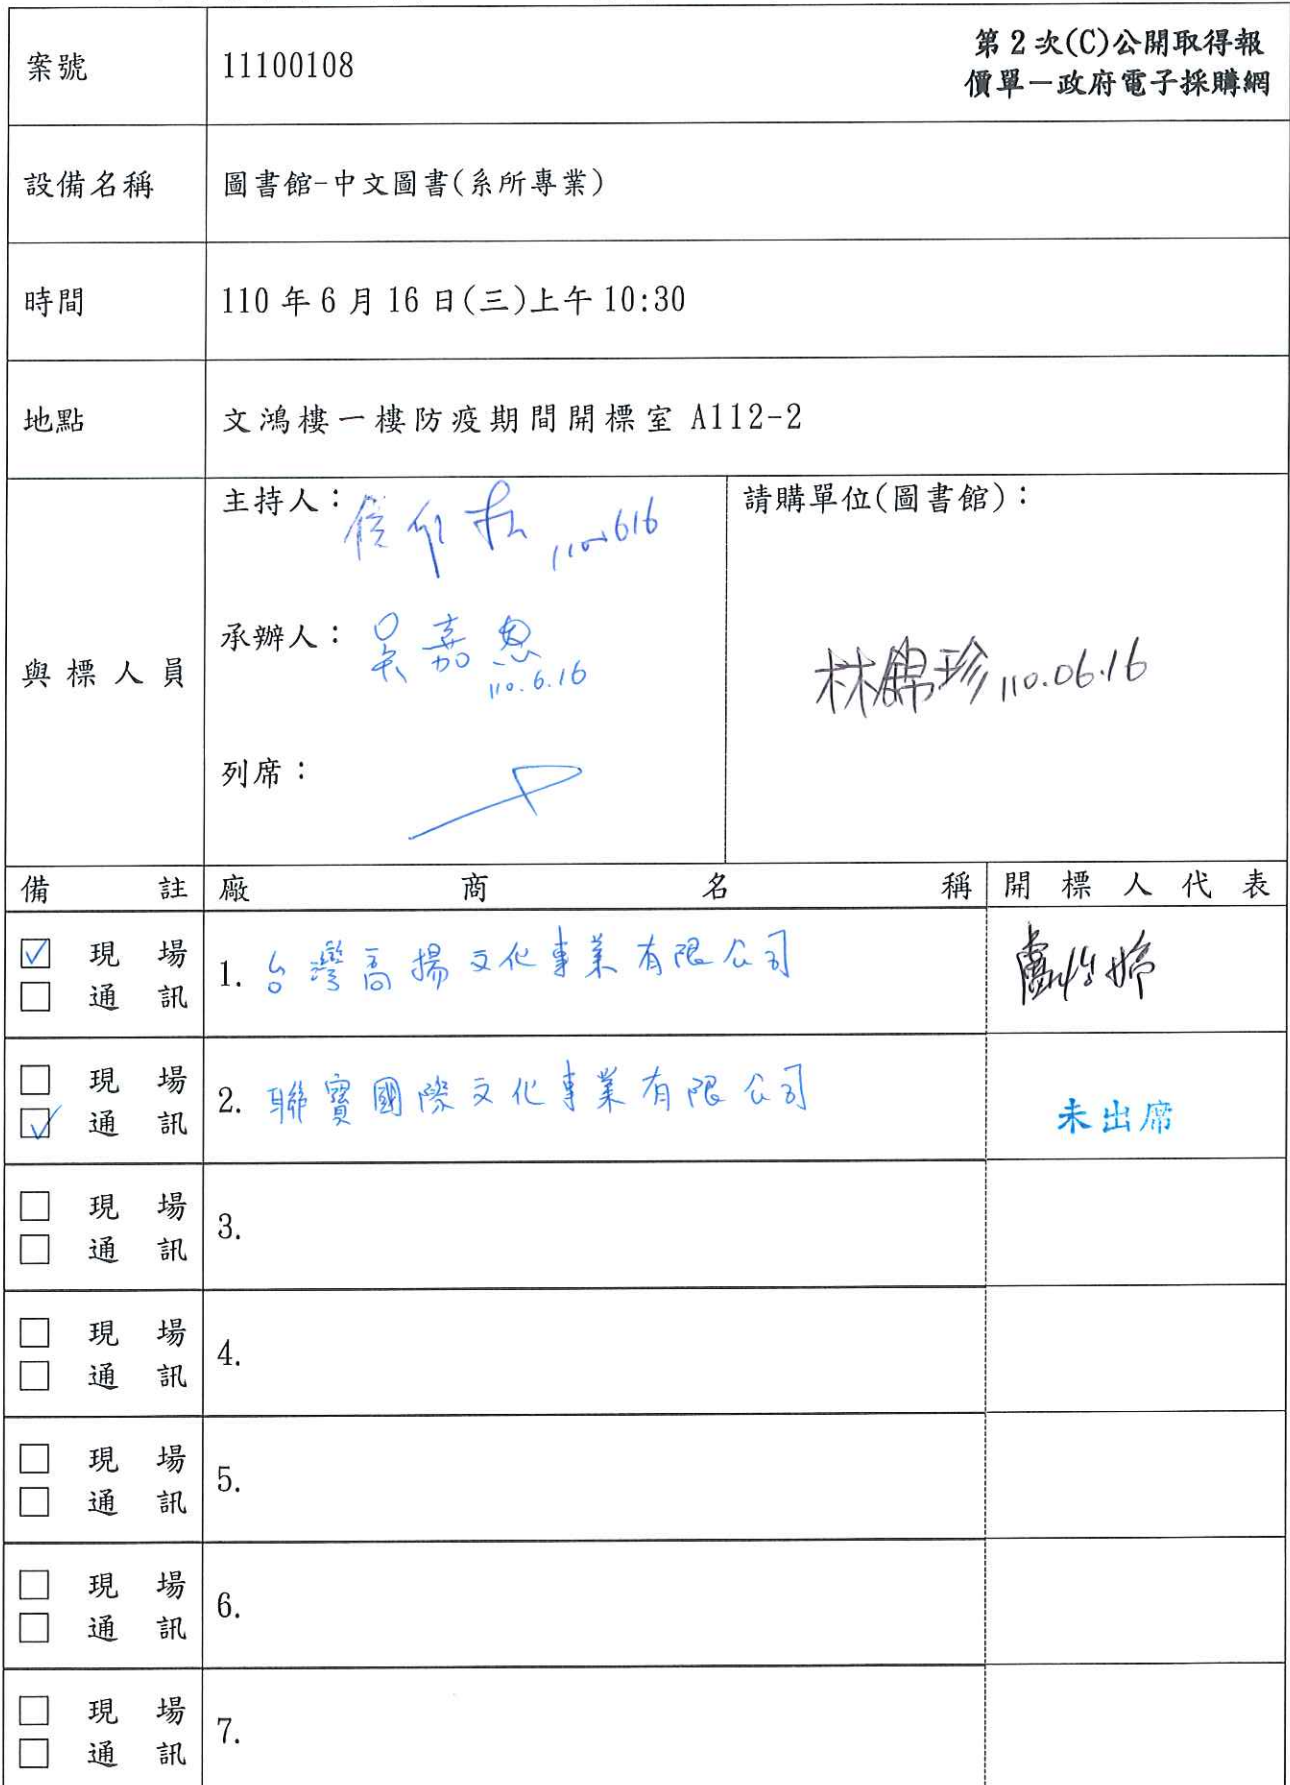 案號 11100108 第2次(C)公開取得報
價單－政府電子採購網
設備名稱 圖書館-中文圖書(系所專業)
時間 110年6月16日(三)上午10:30
地點 文鴻樓一樓防疫期間開標室 A112-2
與標人員
主持人： 1100616
承辦人： 吳嘉恩
110.6.16
列席：
請購單位(圖書館)：
林錦珍 110.06.16
備註 廠商名稱 開標人代表
☑ 現場
☐ 通訊
1. 台灣高揚文化事業有限公司
☐ 現場
☑ 通訊
2. 聯寶國際文化事業有限公司 未出席
☐ 現場
☐ 通訊
3.
☐ 現場
☐ 通訊
4.
☐ 現場
☐ 通訊
5.
☐ 現場
☐ 通訊
6.
☐ 現場
☐ 通訊
7.